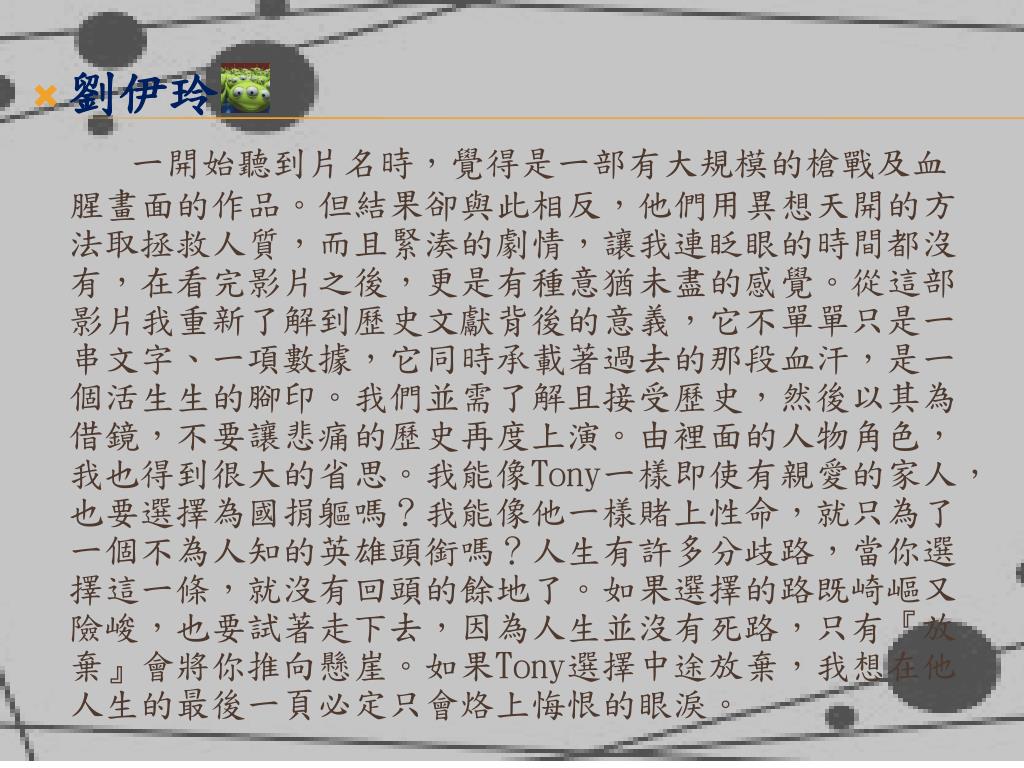 劉伊玲
一開始聽到片名時，覺得是一部有大規模的槍戰及血
腥畫面的作品。但結果卻與此相反，他們用異想天開的方
法取拯救人質，而且緊湊的劇情，讓我連眨眼的時間都沒
有，在看完影片之後，更是有種意猶未盡的感覺。從這部
影片我重新了解到歷史文獻背後的意義，它不單單只是一
串文字、一項數據，它同時承載著過去的那段血汗，是一
個活生生的腳印。我們並需了解且接受歷史，然後以其為
借鏡，不要讓悲痛的歷史再度上演。由裡面的人物角色，
我也得到很大的省思。我能像Tony一樣即使有親愛的家人，
也要選擇為國捐軀嗎？我能像他一樣賭上性命，就只為了
一個不為人知的英雄頭銜嗎？人生有許多分歧路，當你選
擇這一條，就沒有回頭的餘地了。如果選擇的路既崎嶇又
險峻，也要試著走下去，因為人生並沒有死路，只有『放
棄』會將你推向懸崖。如果Tony選擇中途放棄，我想在他
人生的最後一頁必定只會烙上悔恨的眼淚。